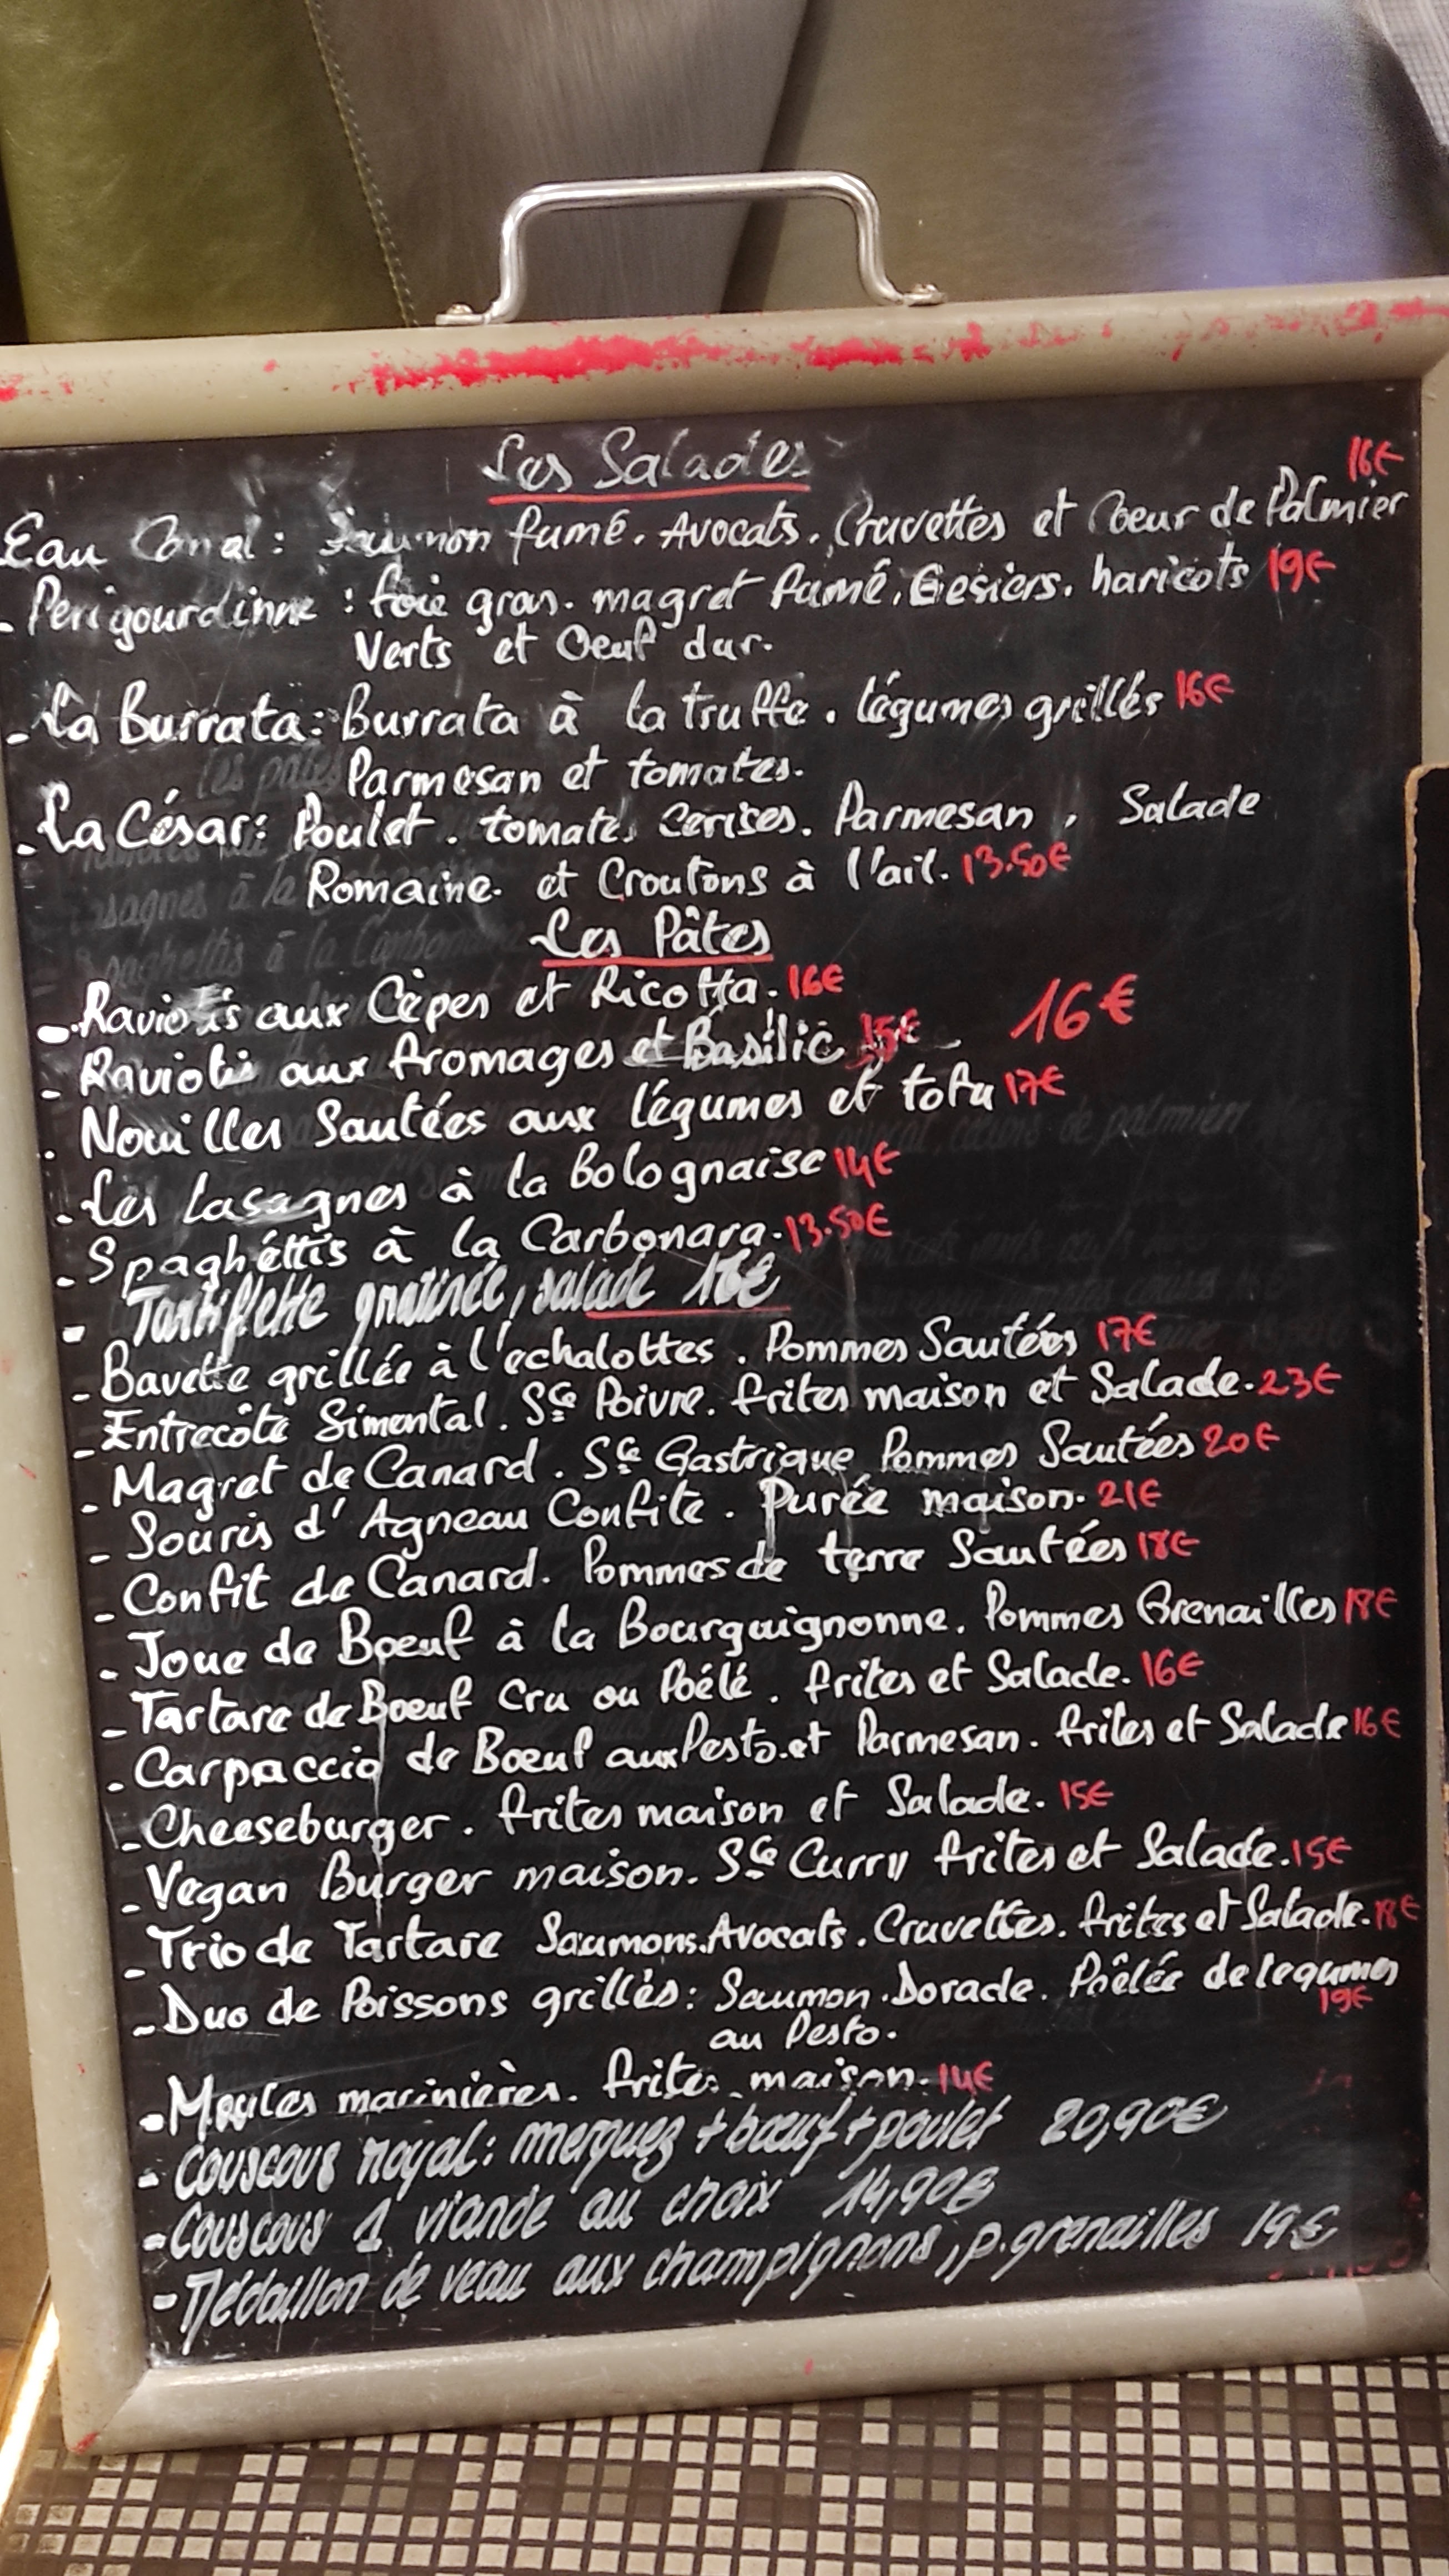 Les Salades
16€
Eau Canal : Saumon fumé. Avocats. Cruvettes et Coeur de Palmier
- Perigourdinne : foie gras. magret fumé. Gesiers. haricots 19€
Verts et Oeuf dur.
- La Burrata : Burrata à la truffe. légumes grillés 16€
Parmesan et tomates.
- La César : Poulet. tomates cerises. Parmesan, Salade
Romaine. et Croutons à l'ail. 13.50€
Les Pâtes
- Raviolis aux Cèpes et Ricotta. 16€
- Raviolis aux fromages et Basilic 15€ 16€
- Nouilles Sautées aux légumes et tofu 17€
- Les Lasagnes à la Bolognaise 14€
- Spaghéttis à la Carbonara. 13.50€
- Tartiflette gratinée, salade 16€
- Bavette grillée à l'echalottes. Pommes Sautées 17€
- Entrecôte Simental. Sce Poivre. frites maison et Salade. 23€
- Magret de Canard. Sce Gastrique Pommes Sautées 20€
- Souris d'Agneau Confite. Purée maison. 21€
- Confit de Canard. Pommes de terre Sautées 18€
- Joue de Boeuf à la Bourguignonne. Pommes Grenailles 18€
- Tartare de Boeuf Cru ou Poélé. frites et Salade. 16€
- Carpaccio de Boeuf aux Pesto. et Parmesan. frites et Salade 16€
- Cheeseburger. frites maison et Salade. 15€
- Vegan Burger maison. Sce Curry frites et Salade. 15€
- Trio de Tartare Saumons. Avocats. Cruvettes. frites et Salade. 18€
- Duo de Poissons grillés : Saumon. Dorade. Poêlée de legumes
au Pesto. 19€
- Moules marinières. frites maison. 14€
- Couscous royal : merguez + bœuf + poulet 20,90€
- Couscous 1 viande au choix 14,90€
- Médaillon de veau aux champignons, p. grenailles 19€